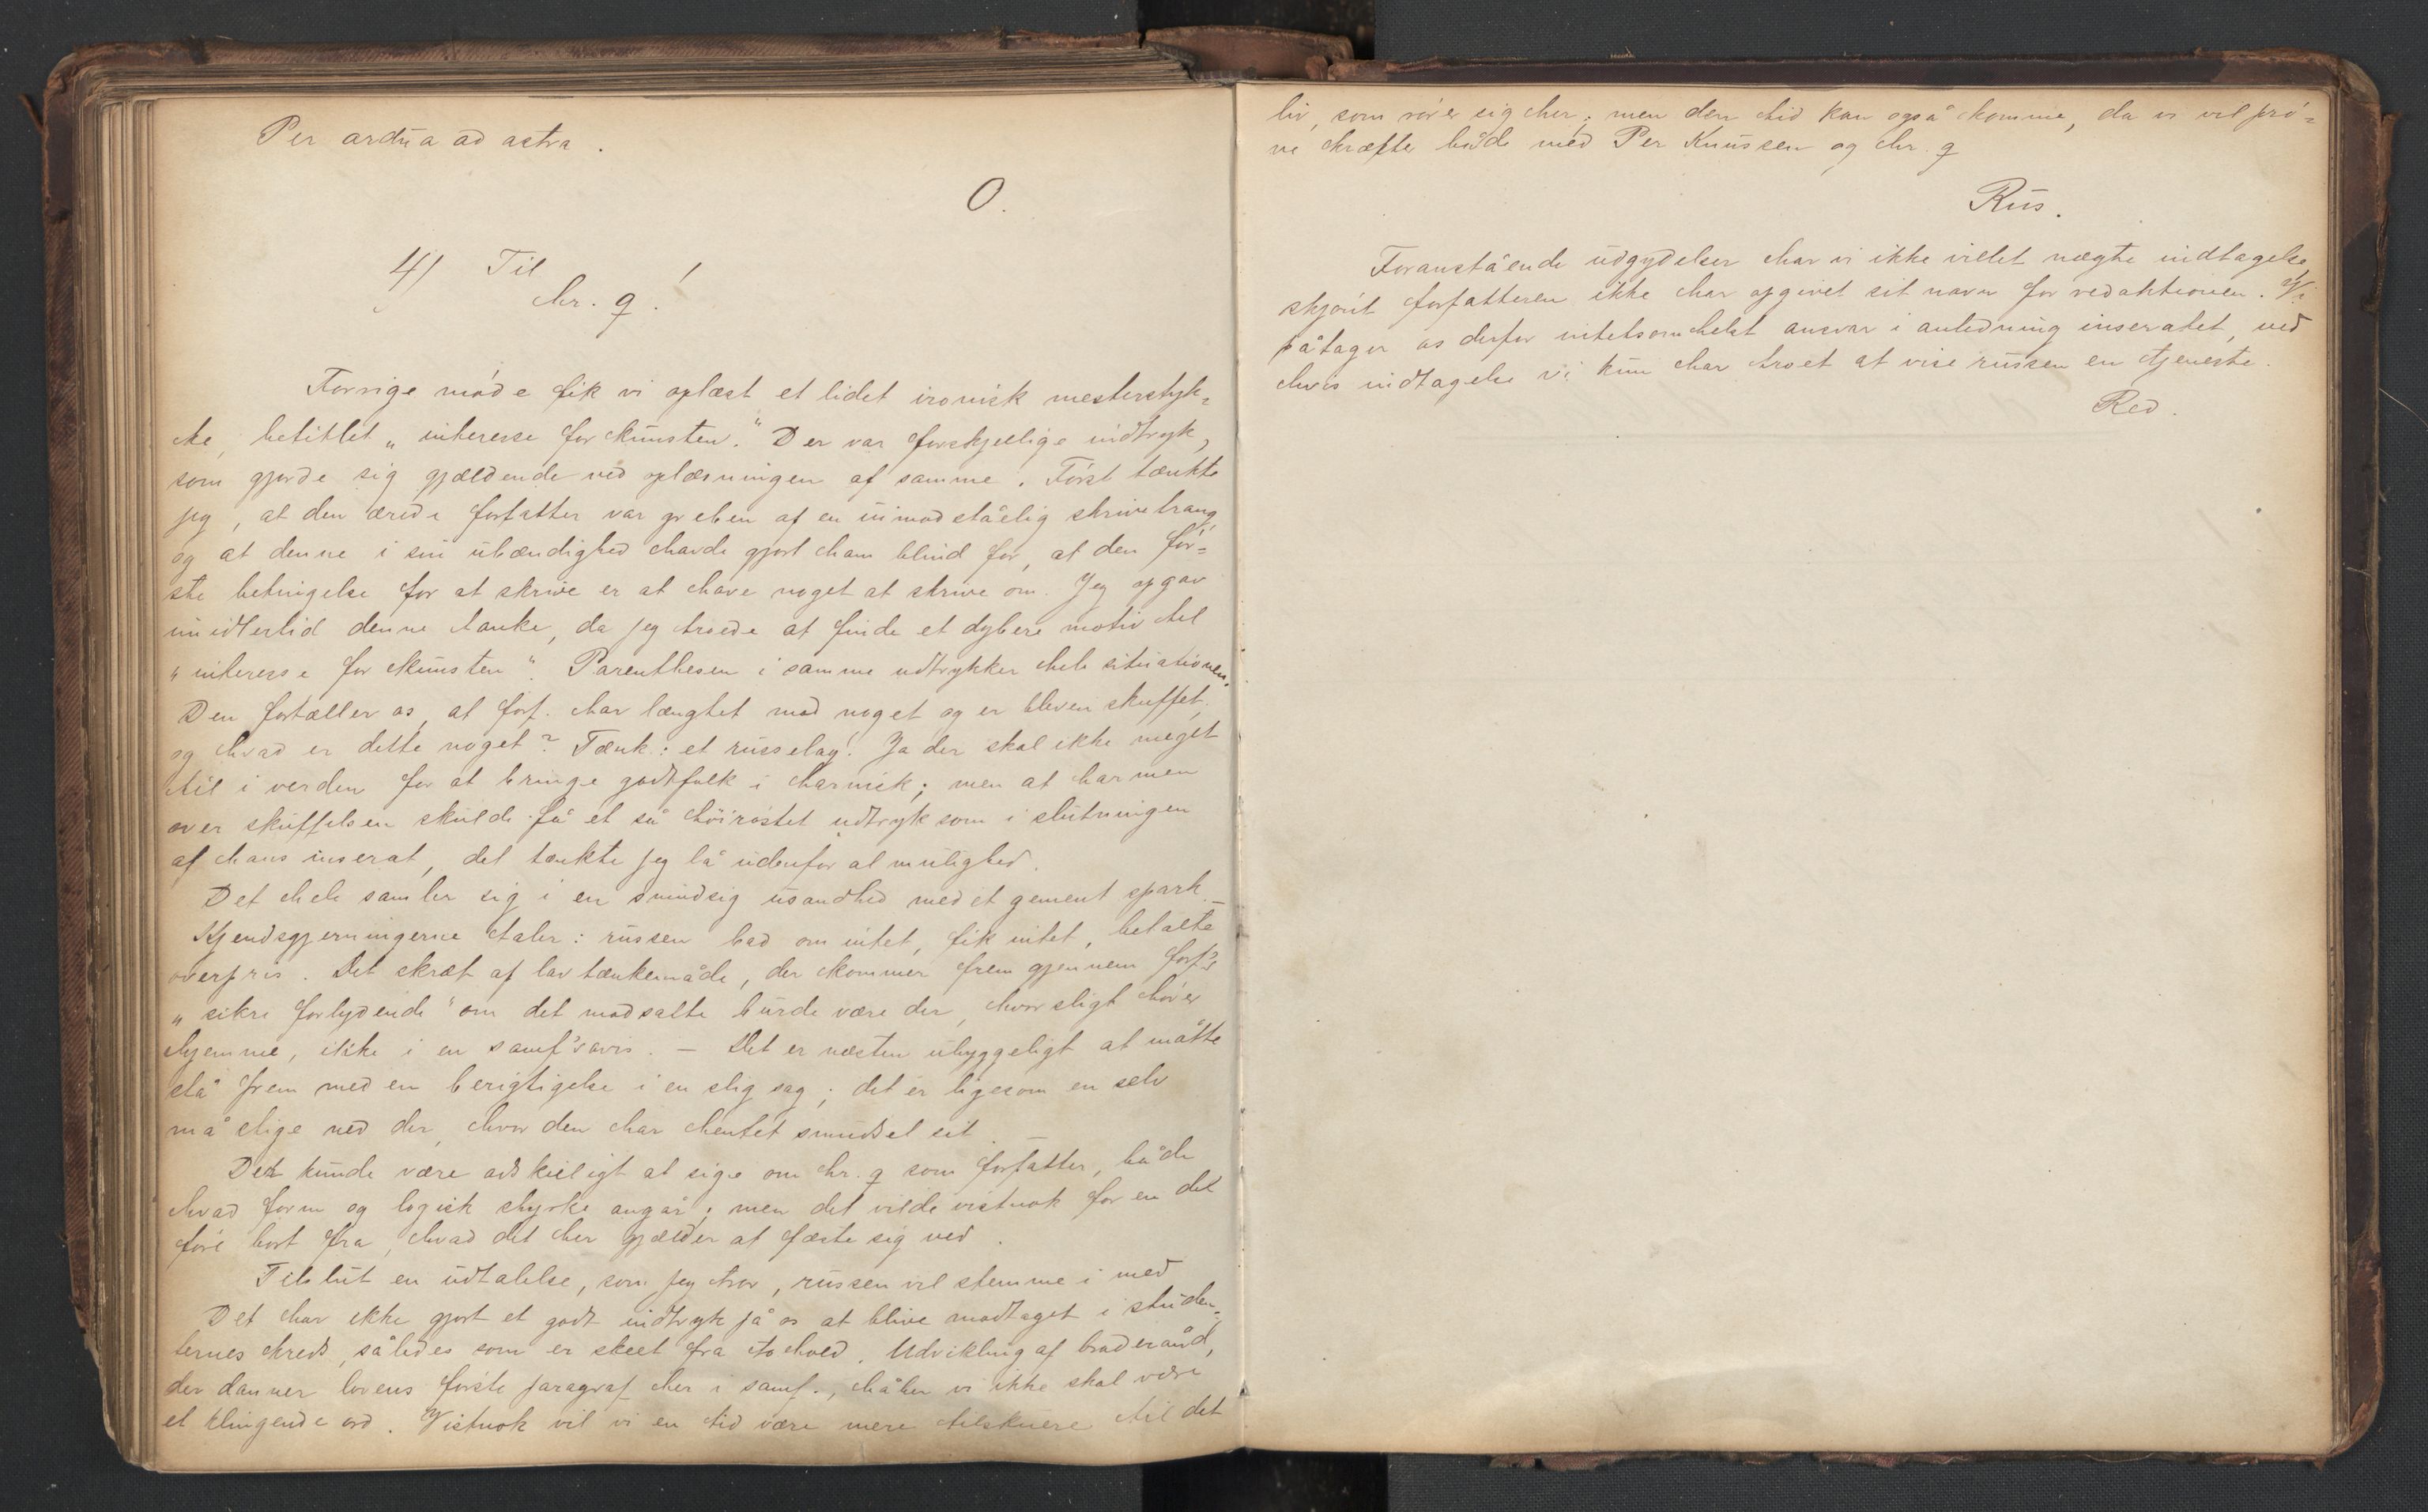 Per ardua ad astra.
O.
4) Til
hr. q.!
Forrige møde fik vi oplæst et lidet ironisk mesterstyk-
ke, betitlet „interesse for kunsten." Der var forskjellige indtryk,
som gjorde sig gjældende ved oplæsningen af samme. Først tænkte
jeg, at den ærede forfatter var greben af en uimodståelig skrivetrang,
og at denne i sin ubændighed havde gjort ham blind for, at den før-
ste betingelse for at skrive er at have noget at skrive om. Jeg opgav
imidlertid denne tanke, da jeg troede at finde et dybere motiv til
„interesse for kunsten". Parenthesen i samme udtrykker hele situationen.
Den fortæller os, at forf. har længtet mod noget og er bleven skuffet,
og hvad er dette noget? Tænk: et russelag! Ja der skal ikke meget
til i verden for at bringe godtfolk i harnisk; men at harmen
over skuffelsen skulde få et så høirøstet udtryk som i slutningen
af hans inserat, det tænkte jeg lå udenfor al mulighed.
Det hele samler sig i en smudsig usandhed med et gement spark. –
Kjendsgjerningerne taler: russen bad om intet, fik intet, betalte
overpris. Det skræt af lav tænkemåde, der kommer frem gjennem forf's
„sikre forlydende" om det modsatte burde være der, hvor sligt hører
hjemme, ikke i en samf'savis. – Det er næsten uhyggeligt at måtte
stå frem med en berigtigelse i en slig sag; det er ligesom en selv
må stige ned der, hvor den har hentet smudset sit. –
Det kunde være adskilligt at sige om hr. q som forfatter, både
hvad form og logisk styrke angår; men det vilde vistnok for en del
føre bort fra, hvad det her gjælder at fæste sig ved.
Tilslut en udtalelse, som jeg tror, russen vil stemme i med
Det har ikke gjort et godt indtryk på os at blive modtaget i studen-
ternes kreds, således som er skeet fra to hold. Udvikling af broderånd,
der danner lovens første paragraf her i samf., håber vi ikke skal være
et klingende ord. Vistnok vil vi en tid være mere tilskuere til det
liv, som rører sig her; men den tid kan også komme, da vi vil prø-
ve kræfter både med Per Knussen og hr. q
Rus.
Foranstående udgydelser har vi ikke villet nægte indtagelse,
skjønt forfatteren ikke har opgivet sit navn for redaktionen. Vi
påtager os derfor intetsomhelst ansvar i anledning inseratet, ved
hvis indtagelse vi kun har troet at vise russen en tjeneste.
Red.